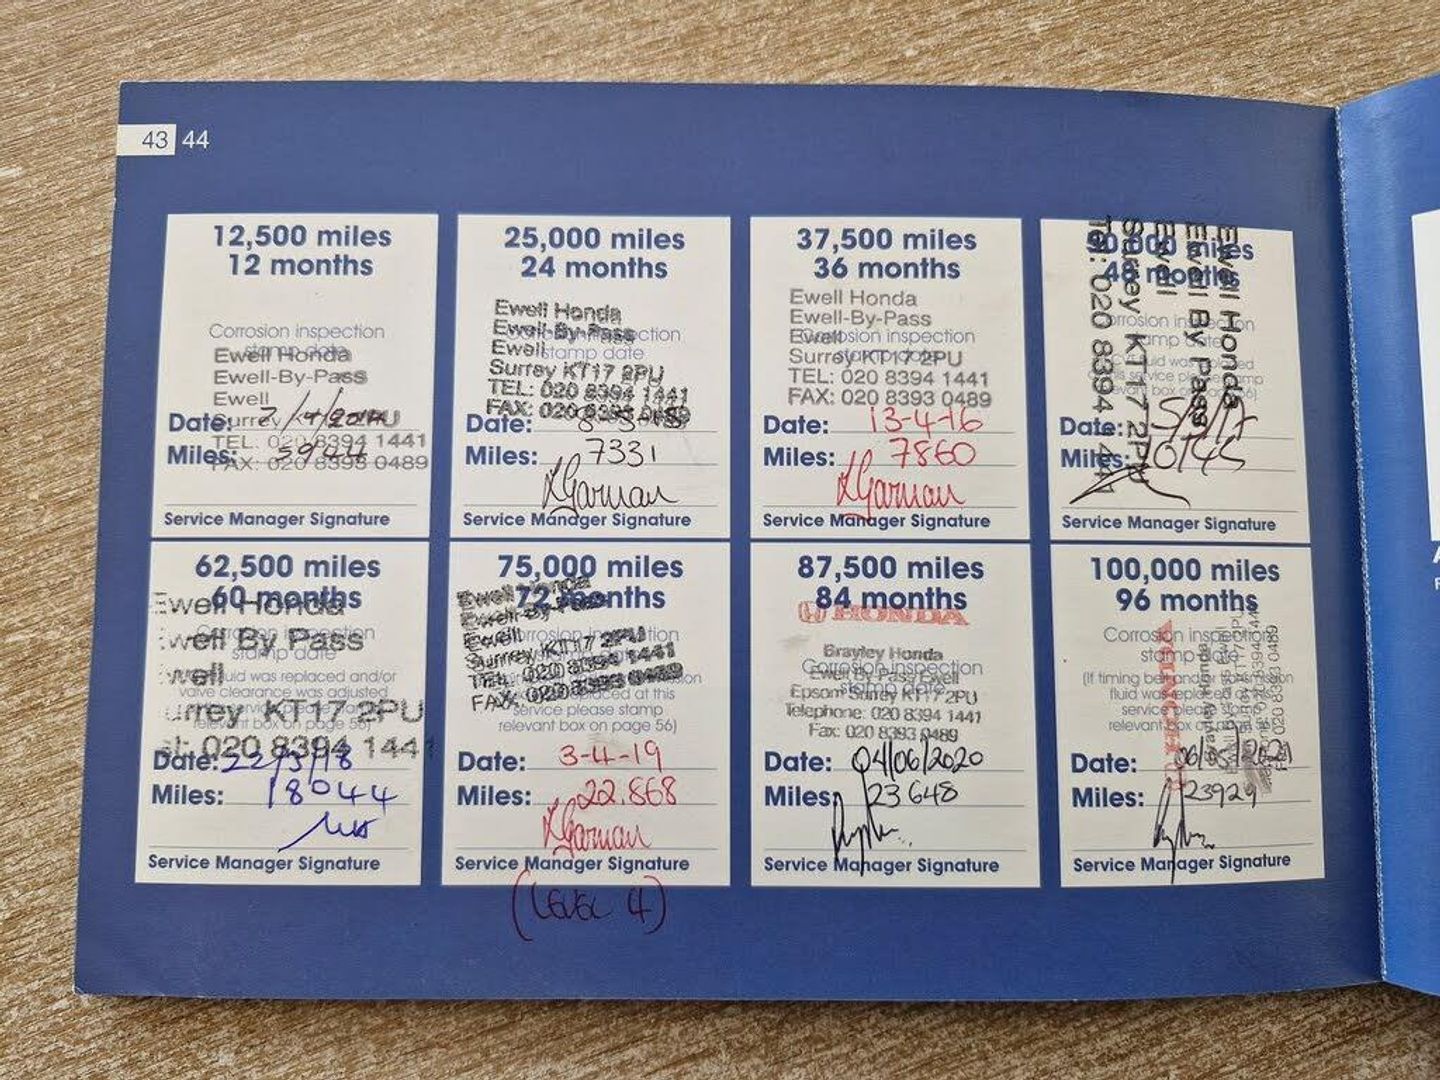 43 44
12,500 miles
12 months
Corrosion inspection
stamp date
Ewell Honda
Ewell-By-Pass
Ewell
Surrey
TEL: 020 8394 1441
FAX: 020 8393 0489
Date:
Miles:
Service Manager Signature
25,000 miles
24 months
Ewell Honda
Ewell-By-Pass
Ewell
stamp date
Surrey KT17 2PU
TEL: 020 8394 1441
FAX: 020 8393 0489
Date:
Miles: 7331
LGarman
Service Manager Signature
37,500 miles
36 months
Ewell Honda
Ewell-By-Pass
Corrosion inspection
Ewell
Surrey KT17 2PU
TEL: 020 8394 1441
FAX: 020 8393 0489
Date: 13-4-16
Miles: 7860
LGarman
Service Manager Signature
50,000 miles
48 months
Ewell Honda
Ewell By Pass
Ewell
Surrey KT17 2PU
Tel: 020 8394 1441
Date:
Miles:
Service Manager Signature
62,500 miles
60 months
Ewell Honda
Corrosion inspection
Ewell By Pass
stamp date
Ewell
fluid was replaced and/or
valve clearance was adjusted
Surrey KT17 2PU
relevant box on page 56)
020 8394 1441
Date: 22/3/18
Miles: 18044
Service Manager Signature
75,000 miles
72 months
Ewell Honda
Ewell-By-Pass
Ewell
Corrosion inspection
Surrey KT17 2PU
TEL: 020 8394 1441
FAX: 020 8393 0489
replaced at this
service please stamp
relevant box on page 56)
Date: 3-4-19
Miles: 22.868
LGarman
Service Manager Signature
(Level 4)
87,500 miles
84 months
HONDA
Brayley Honda
Corrosion inspection
Ewell By Pass Ewell
stamp date
Epsom Surrey KT17 2PU
Telephone: 020 8394 1441
Fax: 020 8393 0489
Date: 04/06/2020
Miles: 23648
Service Manager Signature
100,000 miles
96 months
Corrosion inspection
stamp date
(If timing belt and/or transmission
fluid was replaced at this
service please stamp
relevant box on page 56)
HONDA
Brayley Honda
Date: 06/05/2021
Miles: 23929
Service Manager Signature